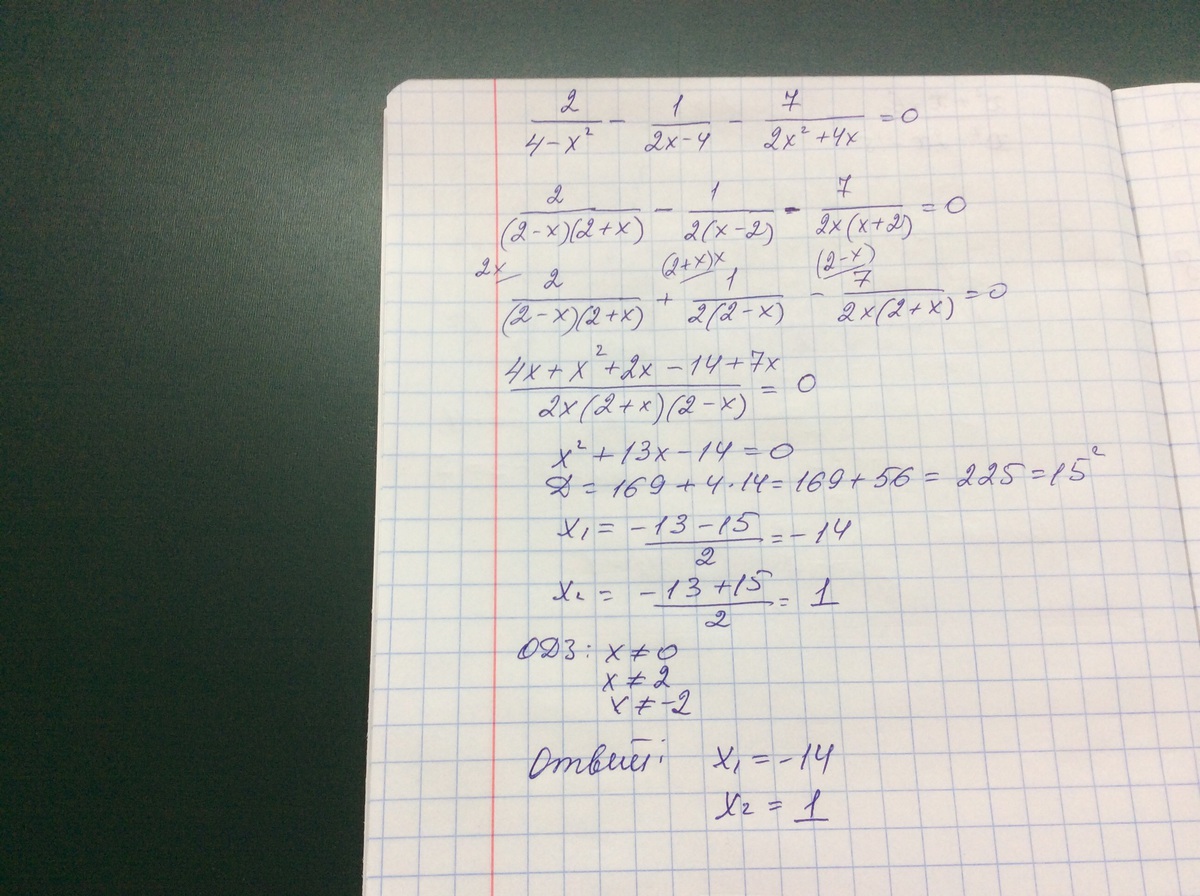 2/(4-x²) - 1/(2x-4) - 7/(2x²+4x) = 0
2/((2-x)(2+x)) - 1/(2(x-2)) - 7/(2x(x+2)) = 0
2x (2+x)x (2-x)
2/((2-x)(2+x)) + 1/(2(2-x)) - 7/(2x(2+x)) = 0
(4x+x²+2x-14+7x)/(2x(2+x)(2-x)) = 0
x²+13x-14=0
Д=169+4·14=169+56=225=15²
x₁=(-13-15)/2=-14
x₂=(-13+15)/2=1
ОДЗ: x≠0
x≠2
x≠-2
Ответ: x₁=-14
x₂=1